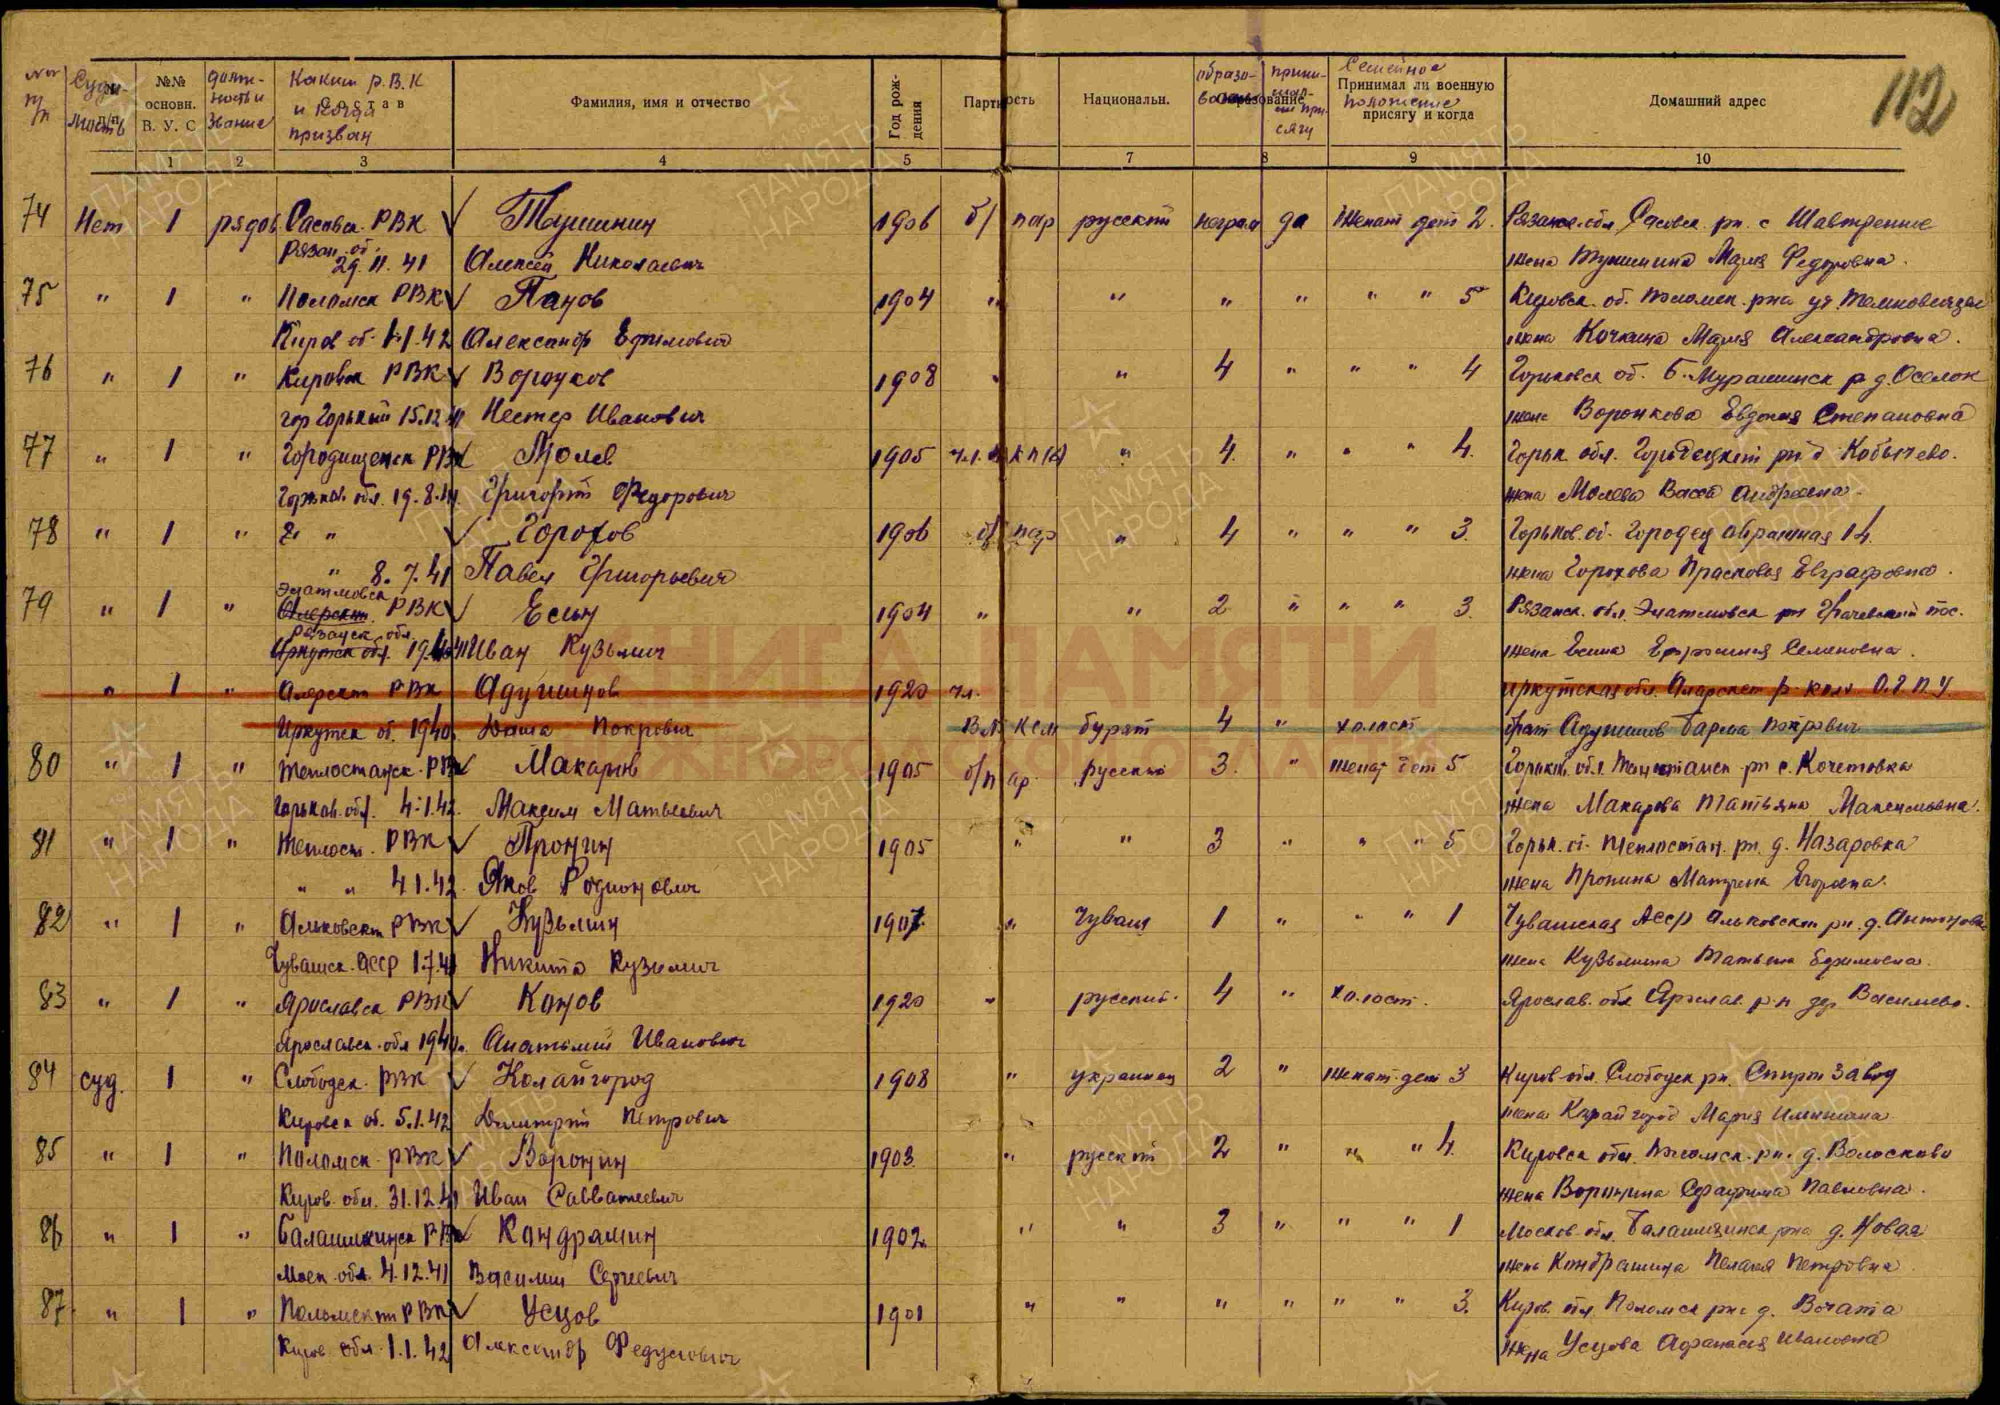 №№ п/п Суди-мость №№ основн. В. У. С. должность и звание Каким Р.В.К и когда призван Состав Фамилия, имя и отчество Год рождения Партийность Национальн. образование Образование принимал ли присягу Семейное положение Принимал ли военную присягу и когда Домашний адрес 112
1 2 3 4 5 7 8 9 10
74 Нет 1 рядов. Сасовск. РВК Тушинин 1906 б/пар русский неграм да женат дет 2. Рязанс. обл. Сасовск. рн. с
Рязан. об. 29.11.41 Алексей Николаевич жена Тушинина Мария Федоровна.
75 " 1 " Поломск РВК Панов 1904 " " " " " " 5 Кировск. об. Поломск. рна
Киров об. 1.1.42 Александр Ефимович жена Кочкина Мария Александровна.
76 " 1 " Кировск РВК Воронков 1908 " " 4 " " " 4 Горьковск об. Б. Мурашкинск р д. Оселок
гор Горький 15.12.41 Нестер Иванович жена Воронкова Евдокия Степановна
77 " 1 " РВК Молев 1905 чл. ВКП(б) " 4. " " " 4. Горьк. обл. Городецкий рн д Кобычево.
Горьков. обл. 19.8.41. Григорий Федорович жена Молева Васса Андреевна.
78 " 1 " " " Горохов 1906 б/пар " 4 " " " 3. Горьков. об. Городец 14.
" 8.7.41 Павел Григорьевич жена Горохова Прасковья Евграфовна.
79 " 1 " Элатмовск Аларский РВК Есин 1904 " " 2 " " " 3. Рязанск. обл. Элатмовск рн пос.
Рязанск обл. Иркутск обл. Иван Кузьмич жена Есина Ефросиния Семеновна.
" 1 " Аларский РВК Адушинов 1920 чл. Иркутская обл. Аларский р. колх О.Г.П.У.
Иркутск об. 1940. Даша Покрович ВЛКСМ бурят 4 " холост брат Адушинов Барма Покрович
80 " 1 " Теплостанск. РВК Макаров 1905 б/пар. русский 3. " женат дет 5 Горьков. обл. Теплостанск рн с. Кочетовка
Горьков. обл. 4.1.42. Максим Матвеевич жена Макарова Татьяна Максимовна.
81 " 1 " Теплост. РВК Пронин 1905 " " 3 " " " 5 Горьк. об. Теплостан. рн. д. Назаровка
" " 4.1.42. Яков Родионович жена Пронина Матрена Егоровна.
82 " 1 " Альковский РВК Кузьмин 1907. " чуваш 1 " " " 1 Чувашская АССР Альковский рн. д.
Чувашск. АССР 1.7.41 Никита Кузьмич жена Кузьмина Татьяна Ефимовна.
83 " 1 " Ярославск РВК Конов 1920 " русский. 4 " холост. Ярослав. обл Ярослав. р-н дер Васильево.
Ярославск. обл 1940г. Анатолий Иванович
84 суд. 1 " Слободск. РВК Колайгород 1908 " украинец 2 " женат. дет 3 Киров обл. Слободск рн. Спирт завод
Кировск об. 5.1.42 Дмитрий Петрович жена Карайгород Мария
85 " 1 " Поломск. РВК Воронин 1903. " русский 2 " " " 4. Кировск обл. Поломск. рн. д. Волосково
Киров. обл. 31.12.41 Иван Савватеевич жена Воронина Серафима Павловна.
86 " 1 " Балашихинск РВК Кондрашин 1902. " " 3 " " " 1 Москов. обл. Балашихинск рна д. Новая
Моск. обл. 4.12.41 Василий Сергеевич жена Кондрашина Пелагея Петровна
87. " 1 " Поломский РВК Усцов 1901 " " " " " " 3. Киров. обл Поломск рна д.
Киров обл. 1.1.42 Александр жена Усцова Афанасия Ивановна
КНИГА ПАМЯТИ
НИЖЕГОРОДСКОЙ ОБЛАСТИ
ПАМЯТЬ НАРОДА